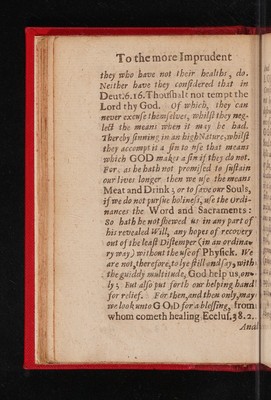 To the more Imprudent
they who have not their healths, do.
Neither have they conſidered that in
Deut.6.16.Thouſhalt not tempt the
Lord thy God. Of which, they can
never excuſe themſelves, whilſt they neg-
lect the means when it may be had.
Thereby ſinning in an high Nature, whilſt
they accompt it a ſin to uſe that means
which GOD makes a ſin if they do not.
For, as he hath not promiſed to ſuſtain
our lives longer then we uſe the means
Meat and Drink; or to ſave our Souls,
if we do not purſue holineſs, uſe the Ordi-
nances the Word and Sacraments:
So hath he not ſhewed us in any part of
his revealed Will, any hopes of recovery
out of the leaſt Diſtemper (in an ordina-
ry way) without the uſe of Phyſick. We
are not, therefore, to lye ſtill and ſay, with
the guiddy multitude, God help us, on-
ly; But alſo put forth our helping hand
for relief. For then, and then only, may
we look unto GOD for a bleſſing, from
whom cometh healing Eccluſ.38.2.
And